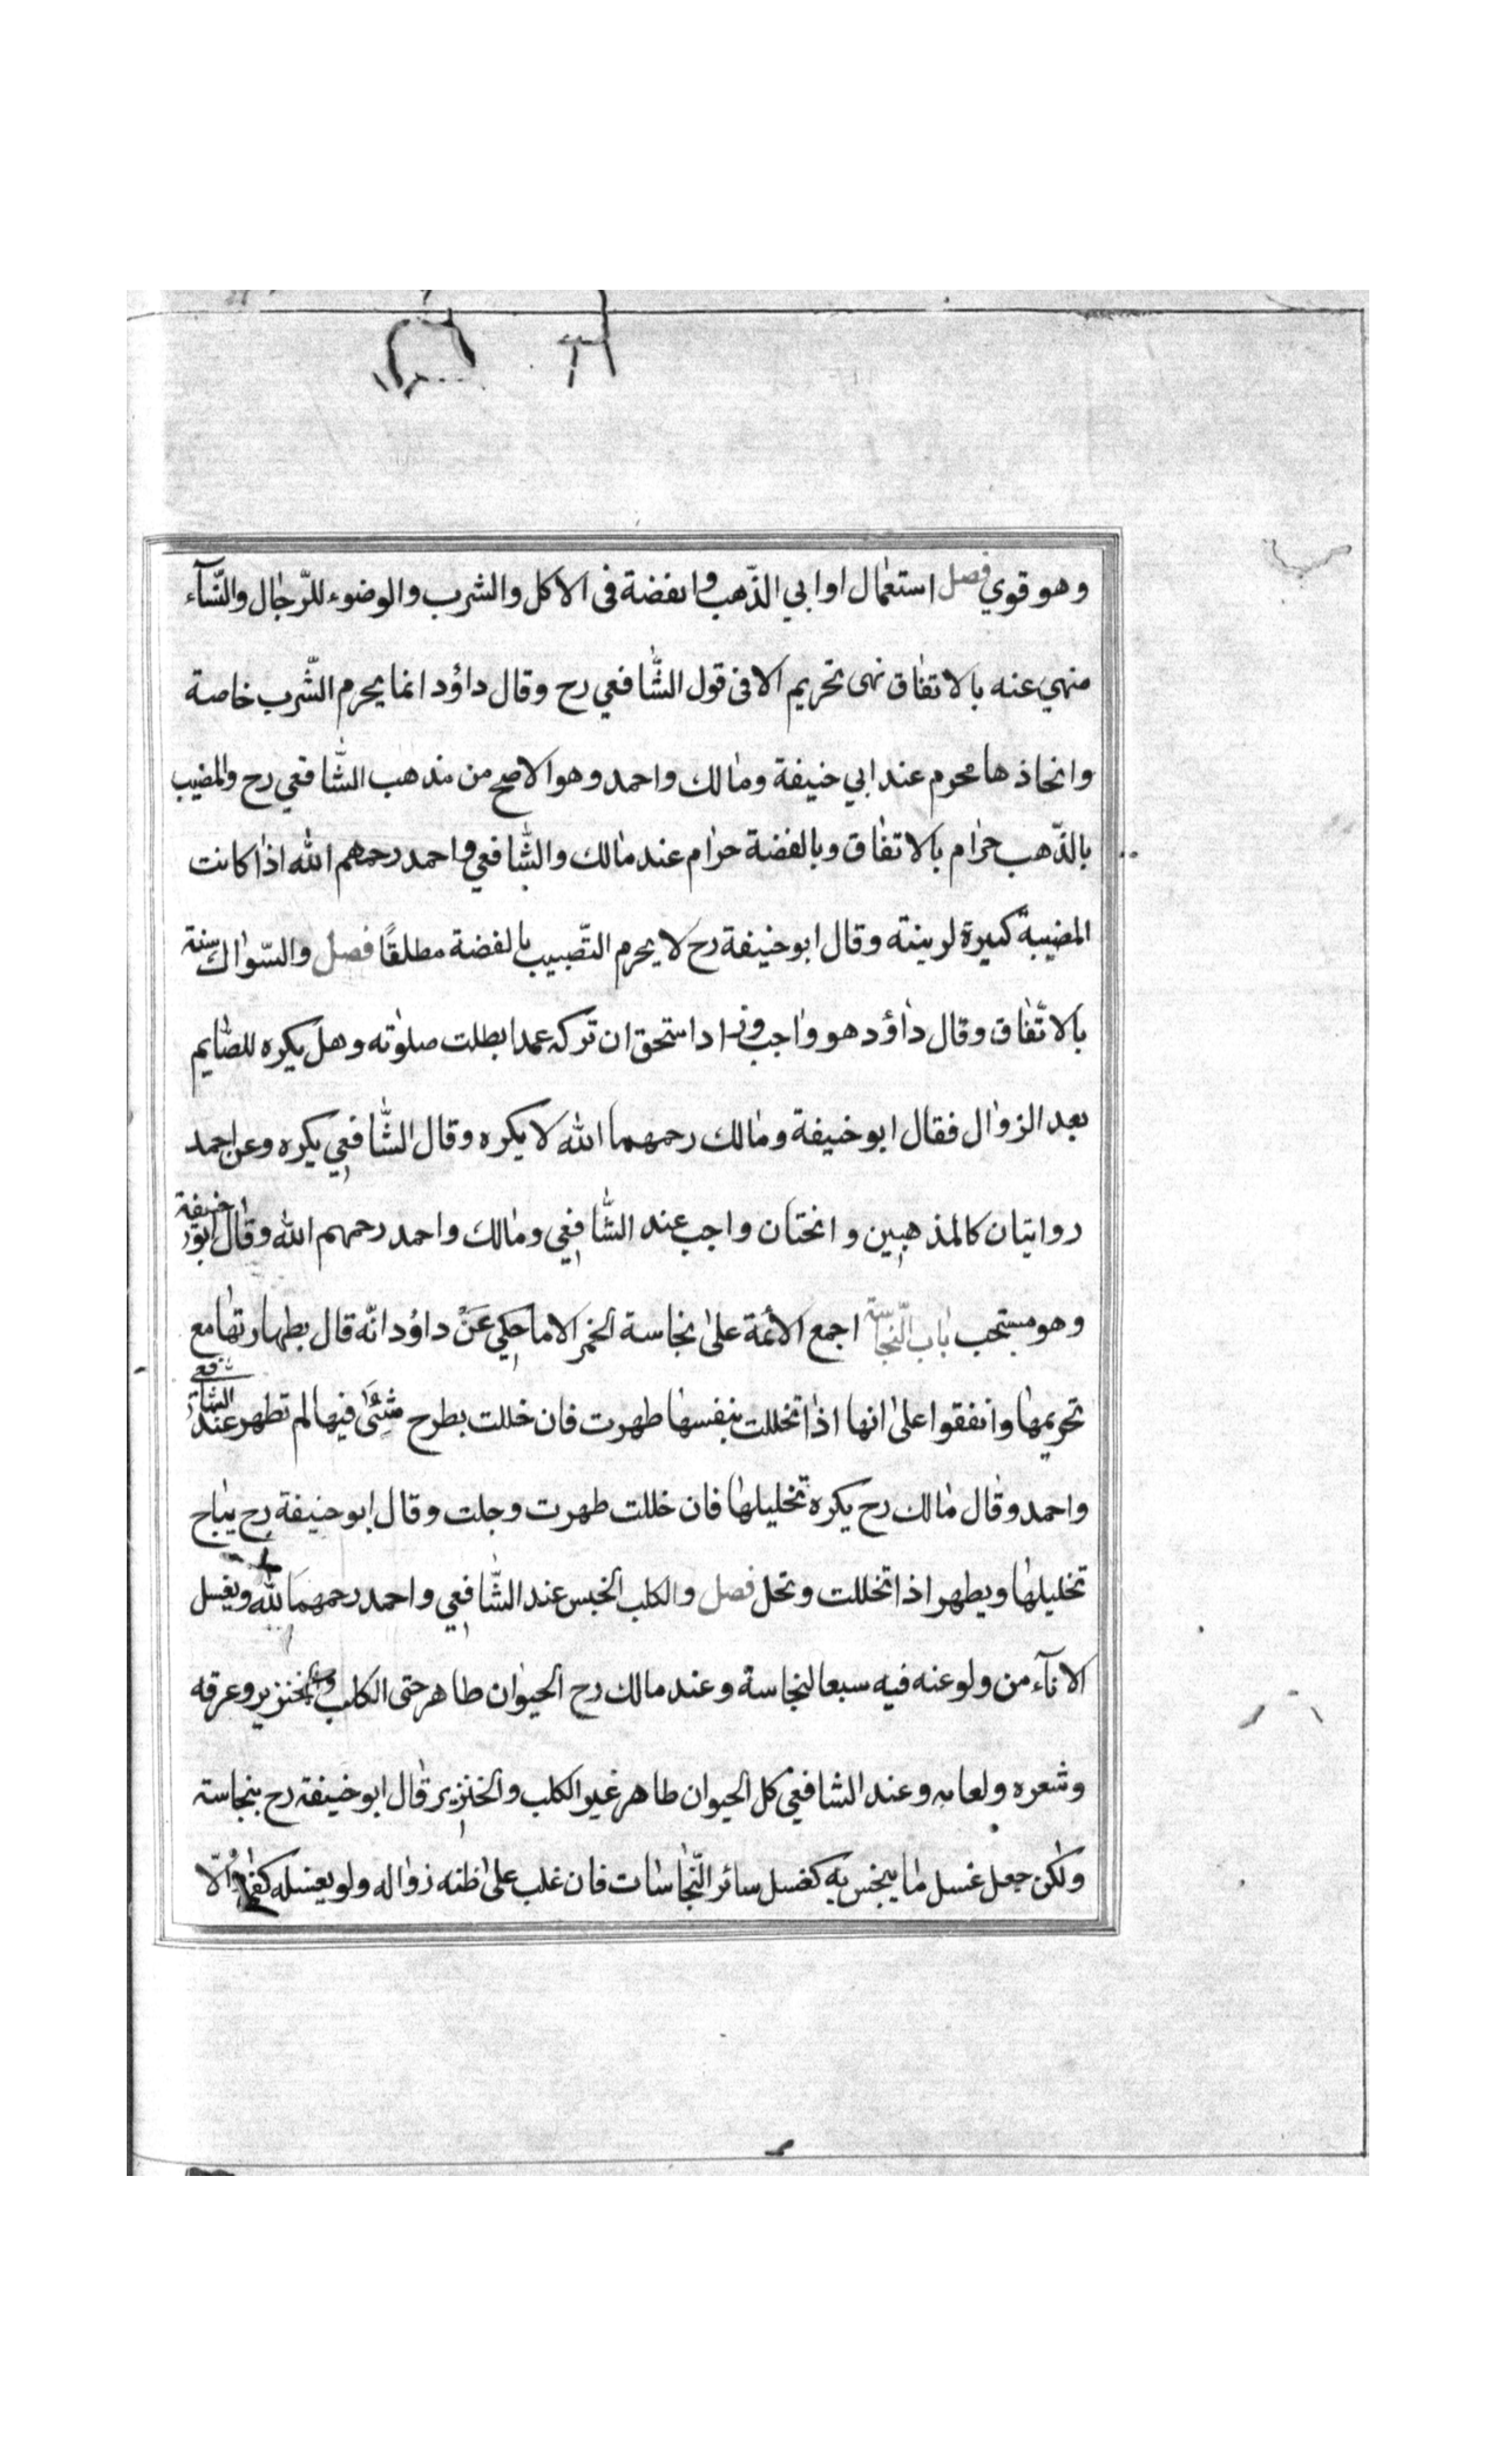 وهو قوي فصل استعمال اواني الذّهب والفضة فى الاكل والشرب والوضوء للرّجال والنّسآء
منهي عنه بالاتفاق نهى تحريم الا فى قول الشّافعي رح وقال داؤد انما يحرم الشّرب خاصة
واتخاذها محرم عند ابي حنيفة ومالك واحمد وهو الاصح من مذهب الشّافعي رح والمضبب
بالذّهب حرام بالاتفاق وبالفضة حرام عند مالك والشّافعي واحمد رحمهم الله اذا كانت
المضببة كبيرة لزينته وقال ابو حنيفة رح لا يحرم التّضبيب بالفضة مطلقًا فصل والسّواك سنة
بالاتّفاق وقال داؤد هو واجب وزاد استحق ان تركه عمدا بطلت صلوته وهل يكره للصّايم
بعد الزوال فقال ابو حنيفة ومالك رحمهما الله لا يكره وقال الشّافعي يكره وعن احمد
روايتان كالمذهبين والختان واجب عند الشّافعي ومالك واحمد رحمهم الله وقال ابو حنيفة
وهو مستحب باب النّجاسة اجمع الأئمة على نجاسة الخمر الا ما حكي عَنْ داؤد انّه قال بطهارتها مع
تحريمها واتفقوا على انها اذا تخللت بنفسها طهرت فان خللت بطرح شئ فيها لم تطهر عند الشافعي
واحمد وقال مالك رح يكره تخليلها فان خللت طهرت وحلت وقال ابو حنيفة رح يباح
تخليلها ويطهر اذا تخللت وتحل فصل والكلب الخبس عند الشّافعي واحمد رحمهما لله ويغسل
الانآء من ولوغه فيه سبعا لنجاسة وعند مالك رح الحيوان طاهر حتى الكلب والخنزير وعرقه
وشعره ولعابه وعند الشافعي كل الحيوان طاهر غير الكلب والخنزير قال ابو حنيفة رح بنجاسته
ولكن جعل غسل ما ينجس به كغسل سائر النّجاسات فان غلب على ظنه زواله ولو بغسله كفى والّا